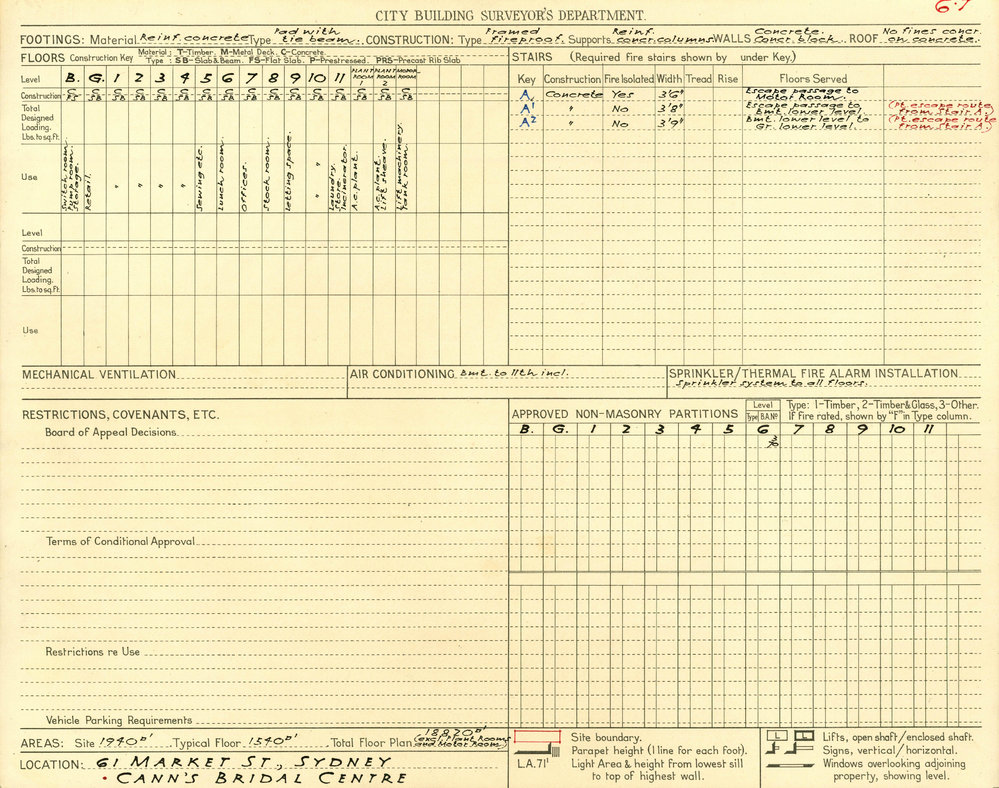 6.7
CITY BUILDING SURVEYOR'S DEPARTMENT.
FOOTINGS: Material Reinf. concrete Type Pad with tie beam. CONSTRUCTION: Type Framed fireproof. Supports Reinf. concr. columns. WALLS Concrete. Concr. block. ROOF No fines concr. on concrete.
FLOORS Construction Key Material; T-Timber. M-Metal Deck. C-Concrete.
Type: SB-Slab & Beam. FS-Flat Slab. P-Prestressed. PRS-Precast Rib Slab
Level B. G. 1 2 3 4 5 6 7 8 9 10 11 PLANT ROOM 1 PLANT ROOM 2 MOTOR ROOM
Construction C FS C SB C SB C SB C SB C SB C SB C SB C SB C SB C SB C SB C SB C SB C SB C SB
Total
Designed
Loading.
Lbs.to sq.ft.
Use
Switch room. Pump room. Storage.
Retail.
"
"
"
"
Sewing etc.
Lunch room.
Offices.
Stock room.
Letting space.
"
Laundry. Store. Incinerator.
A.c. plant.
A.c. plant. Lift sheave.
Lift machinery. Tank room.
Level
Construction
Total
Designed
Loading.
Lbs.to sq.ft.
Use
STAIRS (Required fire stairs shown by under Key.)
Key Construction Fire Isolated Width Tread Rise Floors Served
A Concrete Yes 3'6" Escape passage to Motor Room.
A1 " No 3'8" Escape passage to Bmt. lower level. (Pt. escape route from Stair A.)
A2 " No 3'9" Bmt. lower level to Gr. lower level. (Pt. escape route from Stair A.)
MECHANICAL VENTILATION
AIR CONDITIONING Bmt. to 11th incl.
SPRINKLER/THERMAL FIRE ALARM INSTALLATION
Sprinkler system to all floors.
RESTRICTIONS, COVENANTS, ETC.
Board of Appeal Decisions.
Terms of Conditional Approval
Restrictions re Use
Vehicle Parking Requirements
APPROVED NON-MASONRY PARTITIONS Level Type B.A.No Type: 1-Timber, 2-Timber & Glass, 3-Other.
If Fire rated, shown by "F" in Type column.
B. G. 1 2 3 4 5 6 7 8 9 10 11
AREAS: Site 1940□' Typical Floor 1540□' Total Floor Plan 18820□' (excl. Plant Rooms and Motor Room)
LOCATION: 61 MARKET ST., SYDNEY
• CANN'S BRIDAL CENTRE
Site boundary.
Parapet height (1 line for each foot).
L.A.71' Light Area & height from lowest sill
to top of highest wall.
L L Lifts, open shaft/enclosed shaft.
Signs, vertical/horizontal.
Windows overlooking adjoining
property, showing level.